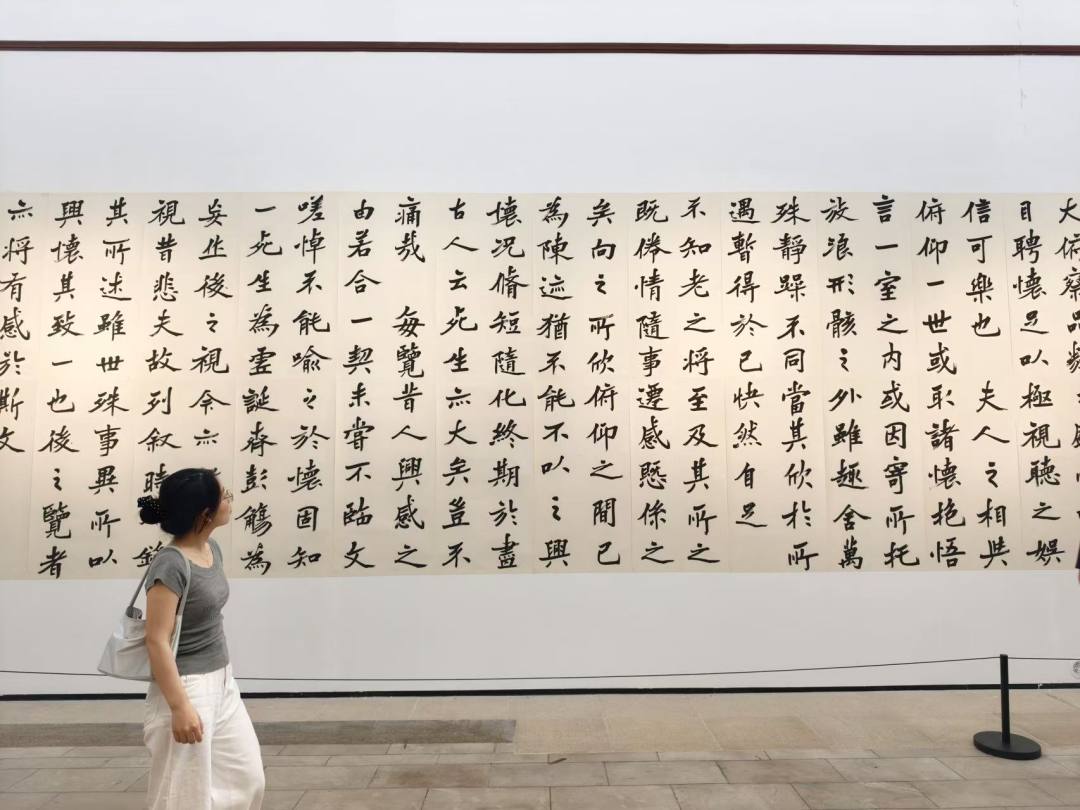 大俯察品類
目騁懷足以極視聽之娛
信可樂也　夫人之相與
俯仰一世或取諸懷抱悟
言一室之内或因寄所托
放浪形骸之外雖趣舍萬
殊靜躁不同當其欣於所
遇暫得於己快然自足
不知老之將至及其所之
既倦情隨事遷感慨係之
矣向之所欣俯仰之間已
為陳迹猶不能不以之興
懷況脩短隨化終期於盡
古人云死生亦大矣豈不
痛哉　每覽昔人興感之
由若合一契未嘗不臨文
嗟悼不能喻之於懷固知
一死生為虛誕齊彭殤為
妄作後之視今亦
視昔悲夫故列叙時錄
其所述雖世殊事異所以
興懷其致一也後之覽者
亦將有感於斯文